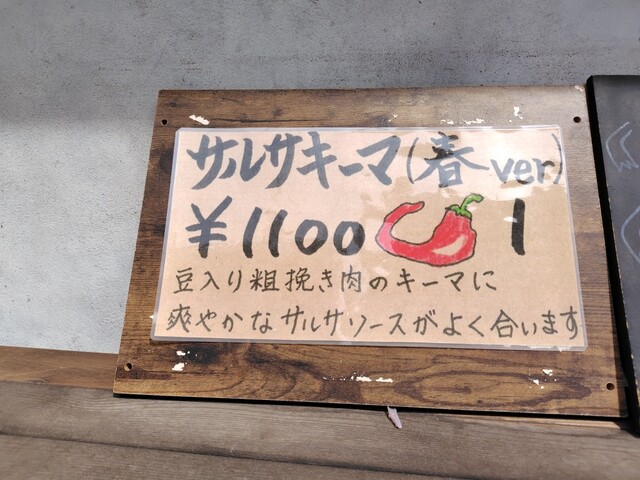 サルサキーマ(春ver)
¥1100 1
豆入り粗挽き肉のキーマに
爽やかなサルサソースがよく合います